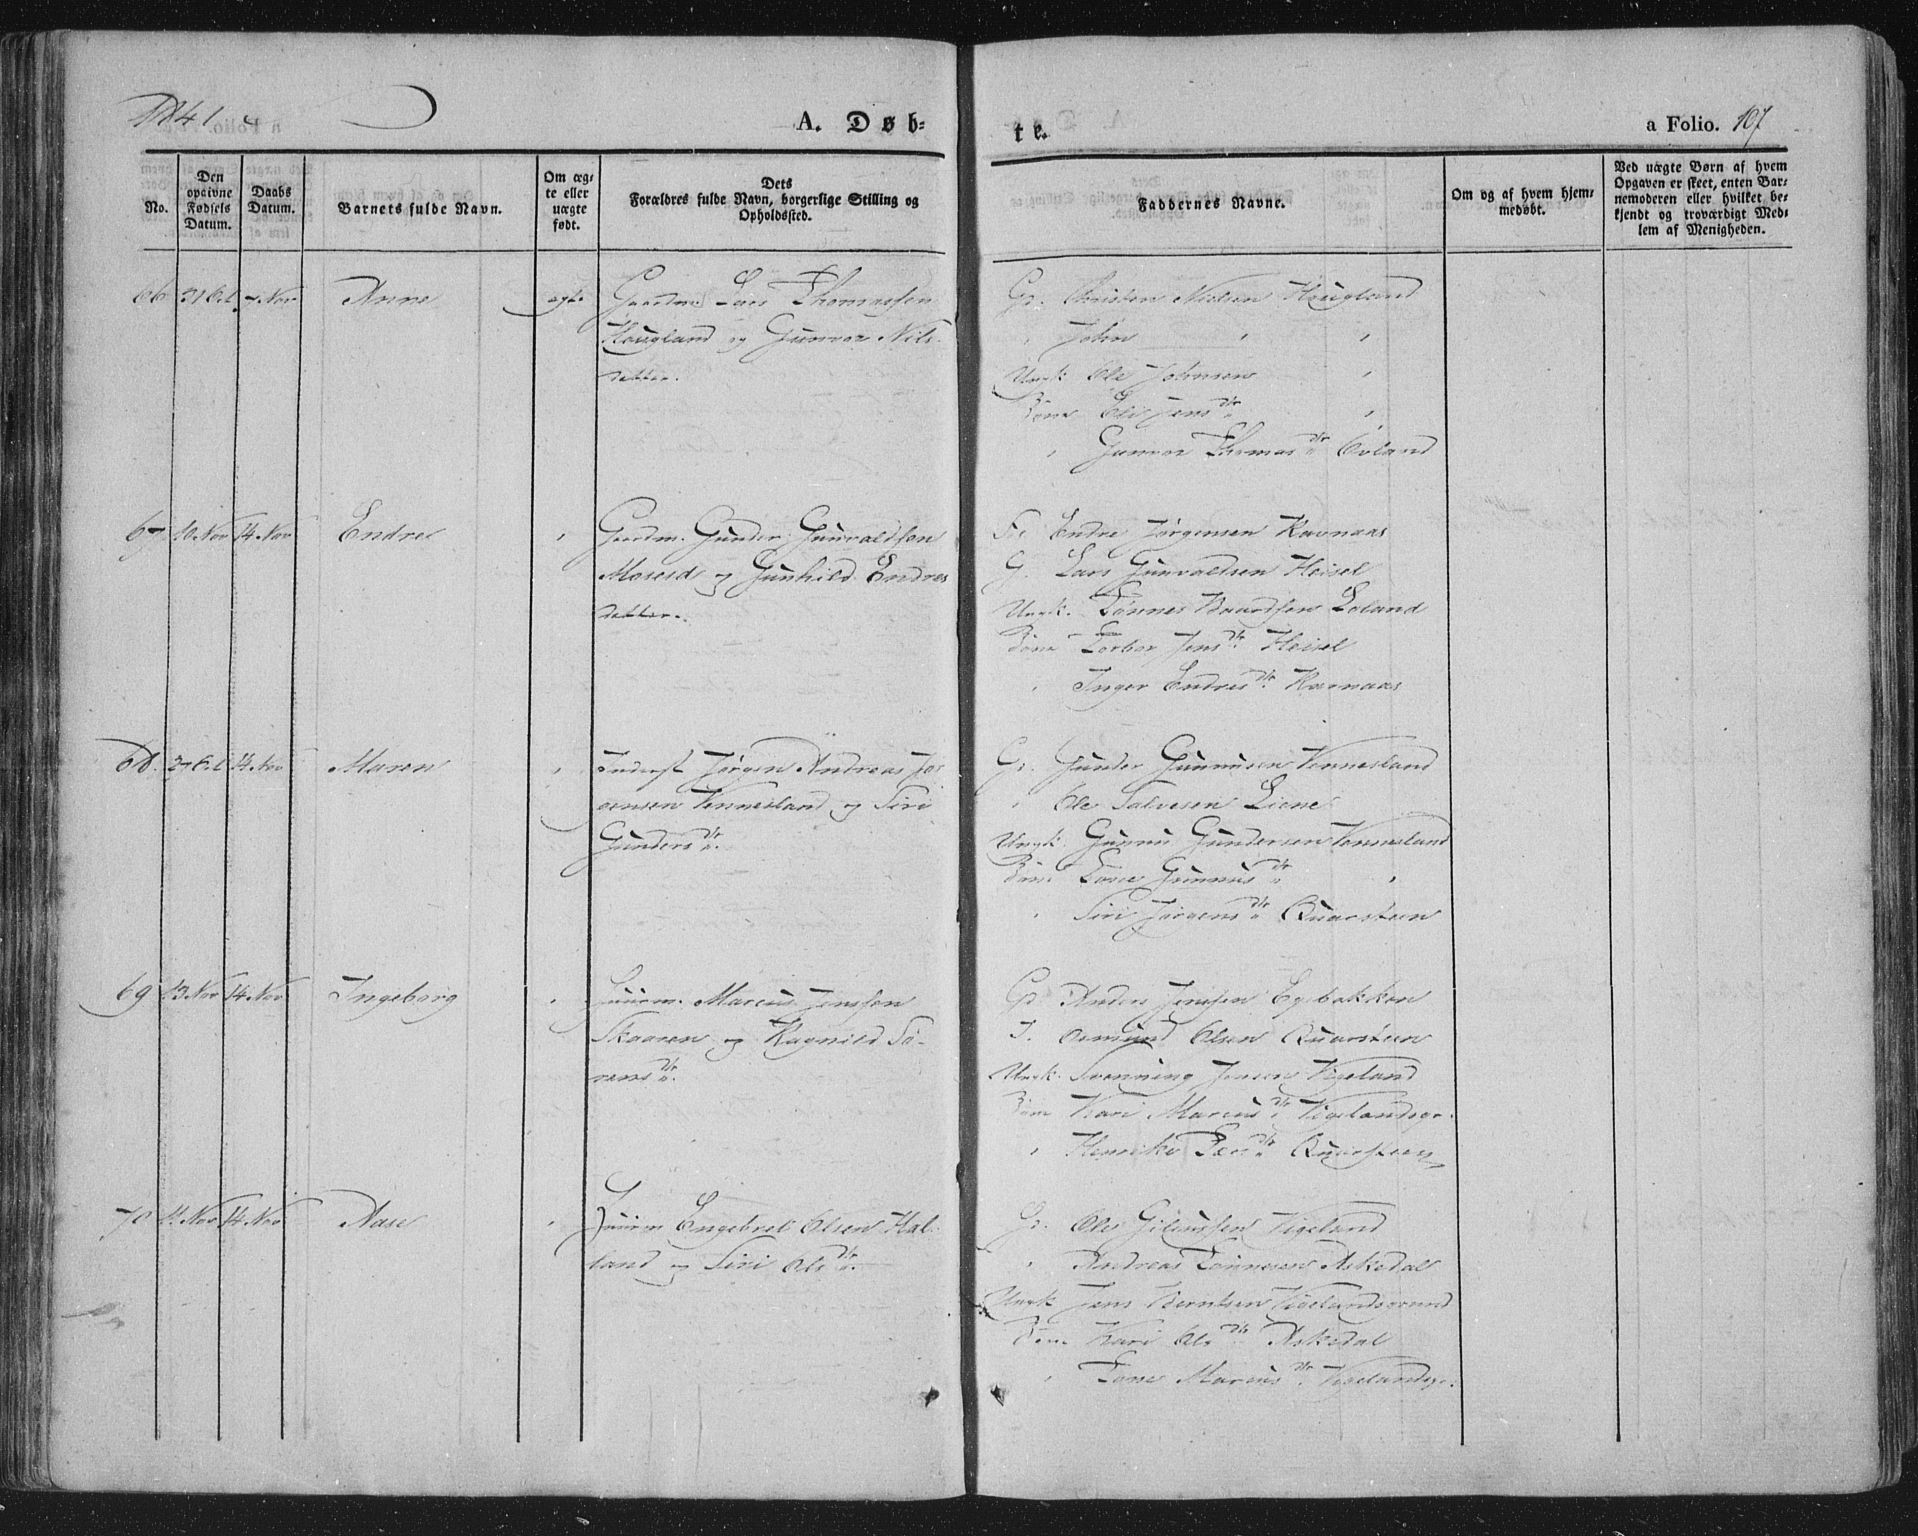 1841
A. Døb-
te.
a Folio. 107
No.
Den opgivne Fødsels Datum.
Daabs Datum.
Barnets fulde Navn.
Om ægte eller uægte født.
Dets Forældres fulde Navn, borgerlige Stilling og Opholdssted.
Faddernes Navne.
Om og af hvem hjemmedøbt.
Ved uægte Børn af hvem Opgaven er skeet, enten Barnemoderen eller hvilket bekjendt og troværdigt Medlem af Menigheden.
66 31 Oct 7 Nov Anne ægte Gaardm. Lars Thomassen
Hougland og Gunvor Nils
datter.
Gr. Christen Nielsen Hougland
" John " "
Ungk. Ole Johnsen "
Kone Eli Jens dtr "
" Gunvor Thomas dtr Øvland
67 10 Nov 14 Nov Endre " Gaardm. Gunder Gunvaldsen
Moseid og Gunhild Endres
datter.
Endre Jørgensen Ravnaas
G. Lars Gunvaldsen Heisel
Ungk. Tønnes Baardsen Loland
Kone Torbor Jens dtr Heisel
" Inger Endres dtr Ravnaas
68. 27 Oct 14 Nov Maren " Inderst Jørgen Andreas Jør
gensen Vennesland og Siri
Gunders dtr.
Gr. Gunder Gunnusen Vennesland
" Ole Salvesen Liene
Ungk. Gunnu Gundersen Vennesland
Kone Tone Gunnus dtr "
" Siri Jørgens dtr Quarsteen
69 13 Nov 14 Nov Ingeborg " Huusm. Marcus Jenssen
Skaaren og Ragnild Sø-
rens dtr.
Gr Anders Jenssen Egebakken
I. Osmund Olsen Quarsteen
Ungk. Svenning Jensen Vigeland
Kone Kari Marcus dtr Vigelandsgr.
" Henrike dtr Quarsteen
70 11 Nov 14 Nov Aase " Huusm Engebret Olsen Hal-
land og Siri Ols dtr.
Gr. Ole Vigeland
" Andreas Tønnesen Askedal
Ungk Jens Berntsen Vigelandsgrund
Kone Kari Ols dtr Askedal
" Tone Marcus dtr. Vigelandsgr.